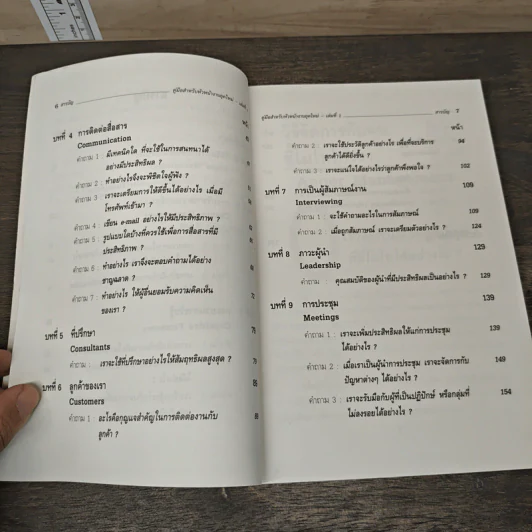 6 สารบัญ
คู่มือสำหรับหัวหน้างานยุคใหม่ : เล่มที่
หน้า
บทที่ 4 การติดต่อสื่อสาร
Communication
คำถาม 1 : มีเทคนิคใด ที่จะใช้ในการสนทนาได้
อย่างมีประสิทธิผล ?
คำถาม 2 : ทำอย่างไรจึงจะพิชิตใจผู้ฟัง ?
คำถาม 3 : เราจะเตรียมการให้ดีขึ้นได้อย่างไร เมื่อมี
โทรศัพท์เข้ามา ?
คำถาม 4 : เขียน e-mail อย่างไรให้มีประสิทธิภาพ ?
คำถาม 5 : รูปแบบใดบ้างที่ควรใช้เพื่อการสื่อสารที่มี
ประสิทธิภาพ ?
คำถาม 6 : ทำอย่างไร เราจึงจะตอบคำถามได้อย่าง
ชาญฉลาด ?
คำถาม 7 : ทำอย่างไร ให้ผู้อื่นยอมรับความคิดเห็น
ของเรา ?
บทที่ 5 ที่ปรึกษา
Consultants
คำถาม : เราจะใช้ที่ปรึกษาอย่างไรให้สัมฤทธิผลสูงสุด ?
บทที่ 6 ลูกค้าของเรา
Customers
คำถาม 1 : อะไรคือกุญแจสำคัญในการติดต่องานกับ
ลูกค้า ?
คู่มือสำหรับหัวหน้างานยุคใหม่ : เล่มที่ 1
สารบัญ 7
หน้า
คำถาม 2 : เราจะใช้ประวัติลูกค้าอย่างไร เพื่อที่จะบริการ 94
ลูกค้าได้ดียิ่งขึ้น ?
คำถาม 3 : เราจะแน่ใจได้อย่างไรว่าลูกค้าพึงพอใจ ? 102
บทที่ 7 การเป็นผู้สัมภาษณ์งาน 109
Interviewing
คำถาม 1 : จะใช้คำถามอะไรในการสัมภาษณ์ 109
คำถาม 2 : เมื่อถูกสัมภาษณ์ เราจะเตรียมตัวอย่างไร ? 124
บทที่ 8 ภาวะผู้นำ 129
Leadership
คำถาม : คุณสมบัติของผู้นำที่มีประสิทธิผลเป็นอย่างไร ? 129
บทที่ 9 การประชุม 139
Meetings
คำถาม 1 : เราจะเพิ่มประสิทธิผลให้แก่การประชุม 139
ได้อย่างไร ?
คำถาม 2 : เมื่อเราเป็นผู้นำการประชุม เราจะจัดการกับ 149
ปัญหาต่างๆ ได้อย่างไร ?
คำถาม 3 : เราจะรับมือกับผู้ที่เป็นปฏิปักษ์ หรือกลุ่มที่ 154
ไม่ลงรอยได้อย่างไร ?